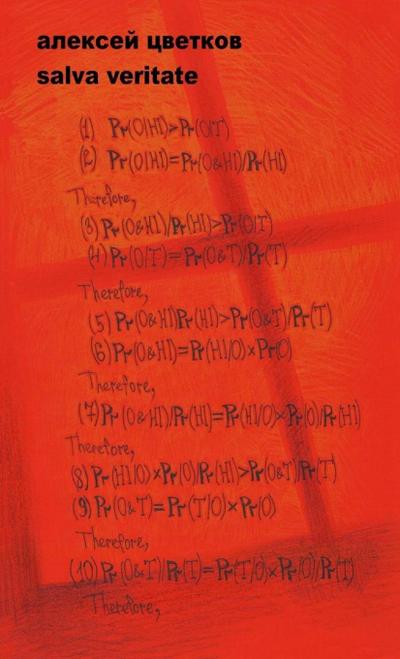 алексей цветков
salva veritate
(1) Pr(O|H1)>Pr(O|T)
(2) Pr(O|H1)=Pr(O&H1)/Pr(H1)
Therefore,
(3) Pr(O&H1)/Pr(H1)>Pr(O|T)
(4) Pr(O|T)=Pr(O&T)/Pr(T)
Therefore,
(5) Pr(O&H1)Pr(H1)>Pr(O&T)/Pr(T)
(6) Pr(O&H1)=Pr(H1/O)×Pr(O)
Therefore,
(7) Pr(O&H1)/Pr(H1)=Pr(H1/O)×Pr(O)/Pr(H1)
Therefore,
(8) Pr(H1/O)×Pr(O)/Pr(H1)>Pr(O&T)/Pr(T)
(9) Pr(O&T)=Pr(T/O)×Pr(O)
Therefore,
(10) Pr(O&T)/Pr(T)=Pr(T/O)×Pr(O)/Pr(T)
Therefore,